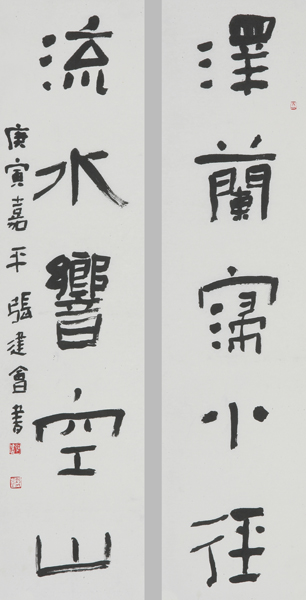 澤蘭寖小徑
流水響空山
庚寅嘉平張建會書